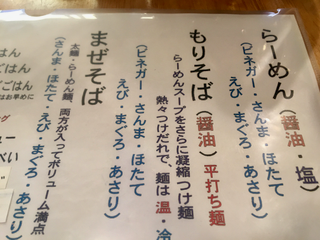 らーめん（醤油・塩）
（ビネガー・さんま・ほたて
えび・まぐろ・あさり）
もりそば（醤油）平打ち麺
らーめんスープをさらに凝縮つけ麺
熱々つけだれで、麺は温・冷
（ビネガー・さんま・ほたて
えび・まぐろ・あさり）
まぜそば
太麺・らーめん麺、両方が入ってボリューム満点
（さんま・ほたて・えび・まぐろ・あさり）
ごはん
ごはん
はお早めに